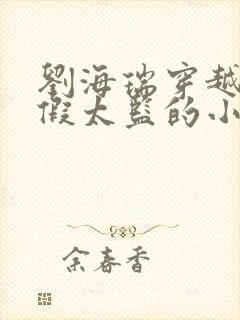 劉海瑞穿越
假太監的小
余春香